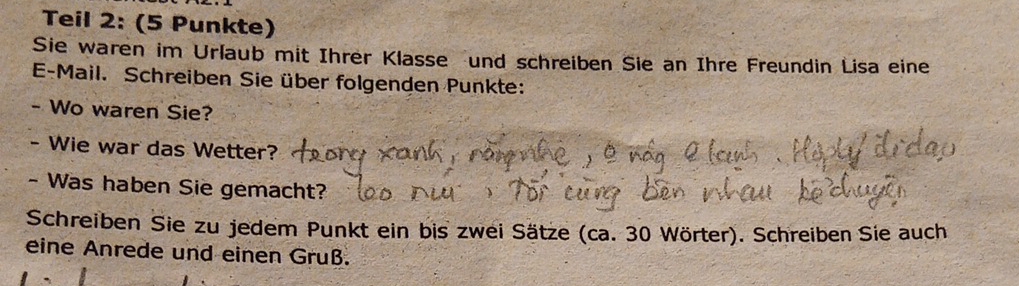 Teil 2: (5 Punkte)
Sie waren im Urlaub mit Ihrer Klasse und schreiben Sie an Ihre Freundin Lisa eine
E-Mail. Schreiben Sie über folgenden Punkte:
- Wo waren Sie?
- Wie war das Wetter? trong xanh, nắng nhẹ, o nắg o lạnh. đi dạo
- Was haben Sie gemacht? leo núi, Tối cùng bên nhau kể chuyện
Schreiben Sie zu jedem Punkt ein bis zwei Sätze (ca. 30 Wörter). Schreiben Sie auch
eine Anrede und einen Gruß.